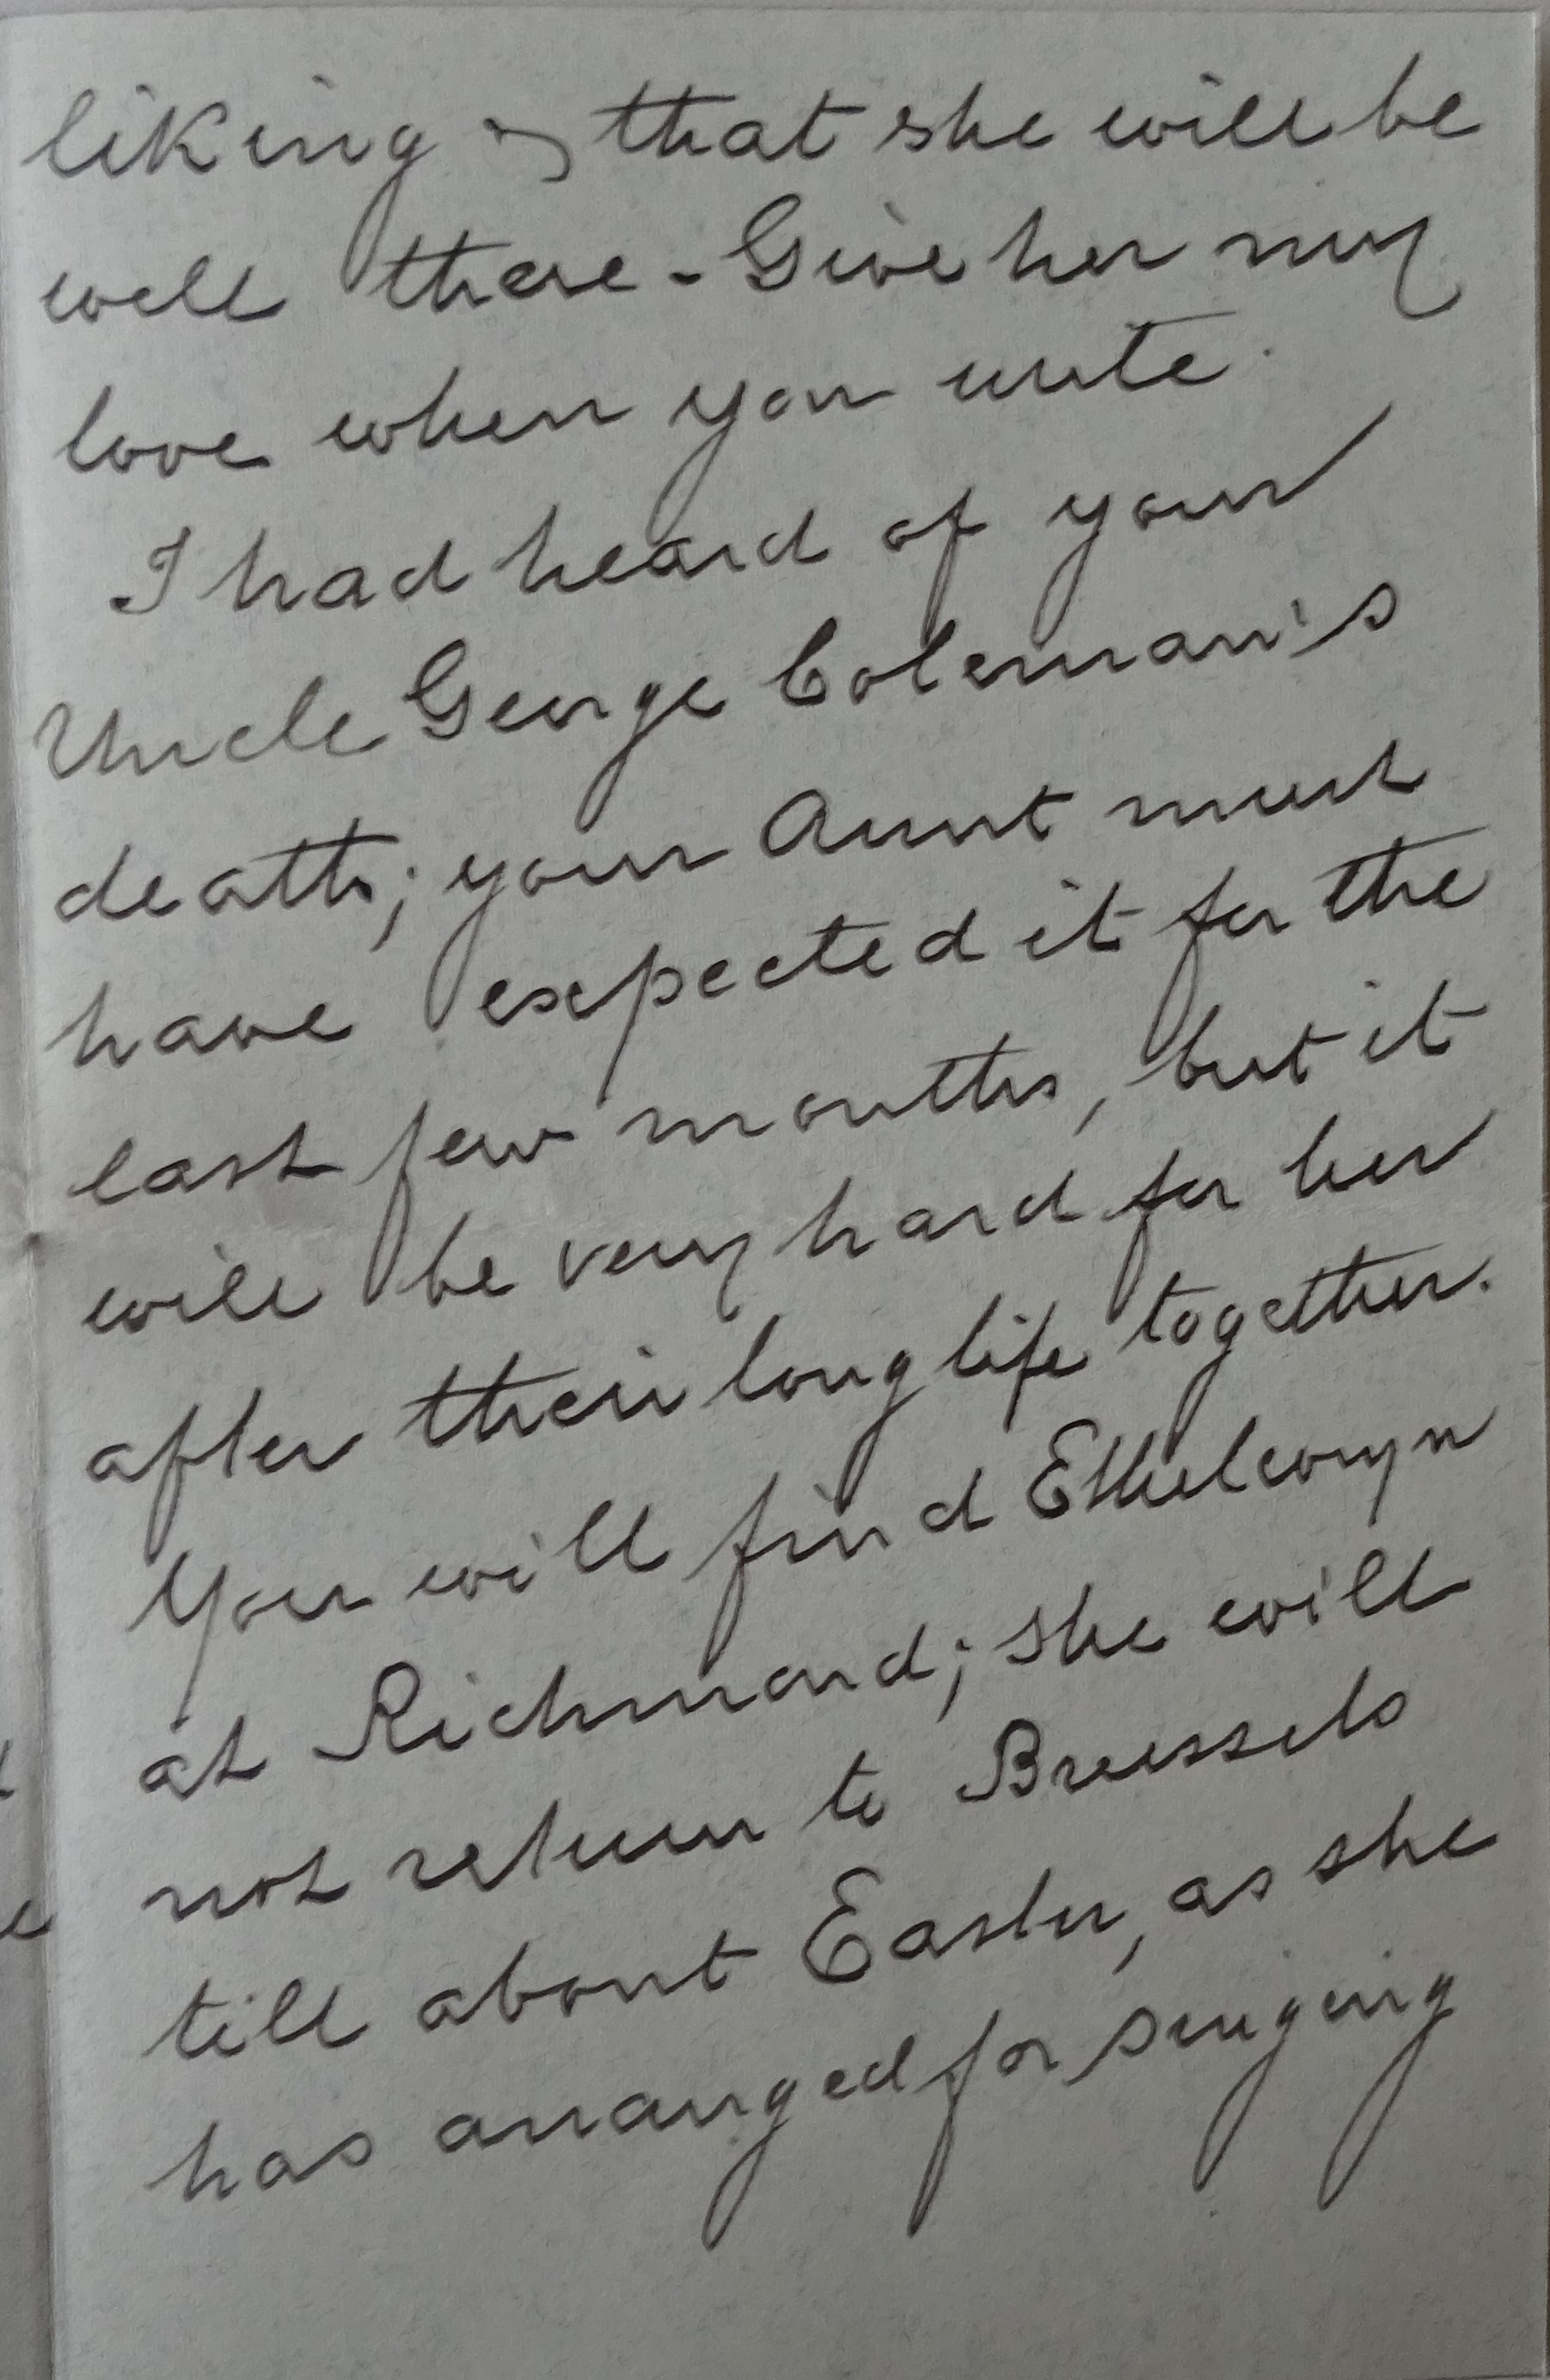 liking & that she will be
well there - Give her my
love when you write.
I had heard of your
Uncle George Coleman's
death; your Aunt must
have expected it for the
last few months, but it
will be very hard for her
after their long life together.
You will find Ethelwyn
at Richmond; she will
not return to Brussels
till about Easter, as she
has arranged for singing